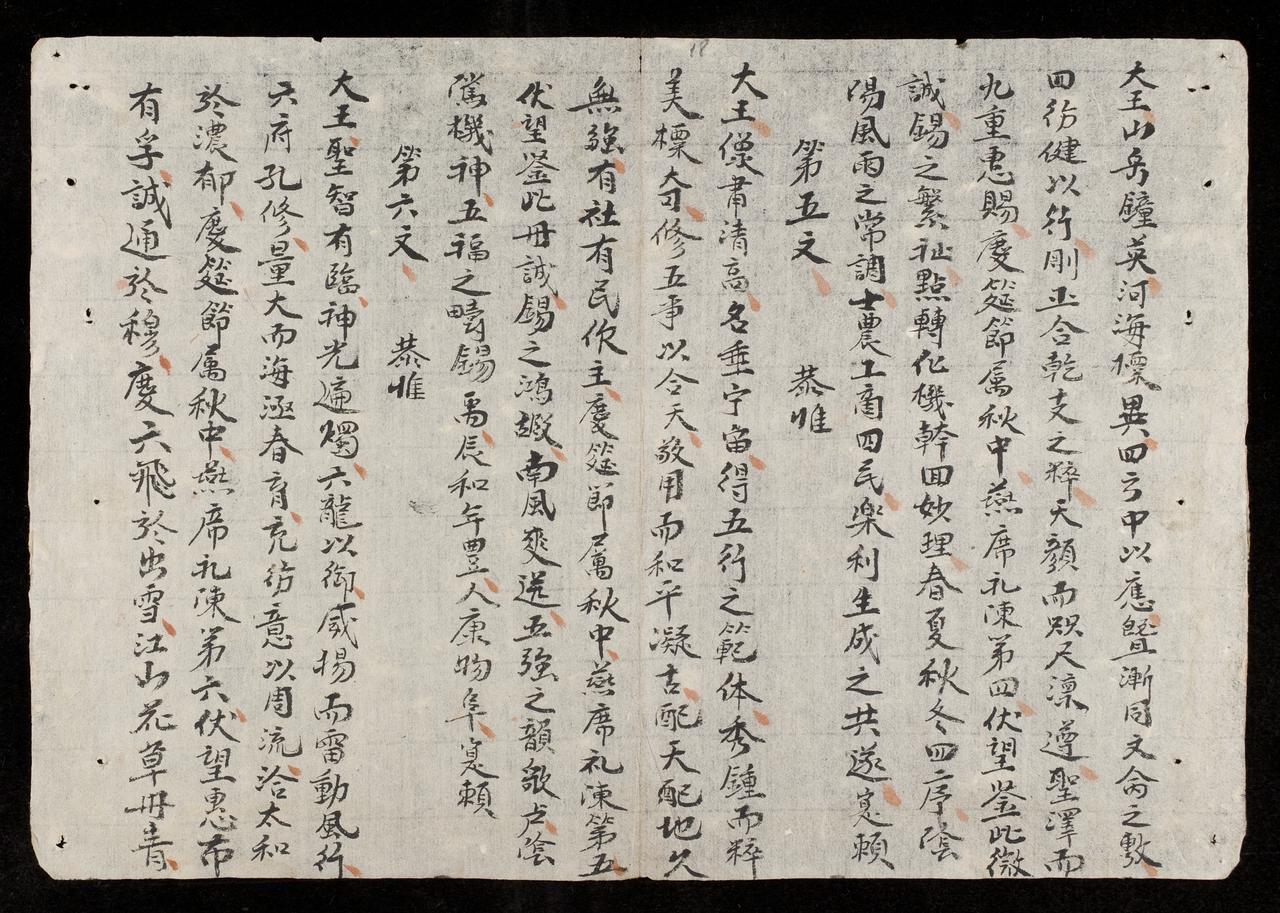 大王山岳鐘英河海標異四方中以應暨漸同文侖之敷
四彷健以行剛正合乾支之粹天顏而咫尺凜遵聖澤而
九重惠賜慶筵節属秋中燕席礼陳第四伏望鉴此微
誠錫之繁祉點轉化機幹回妙理春夏秋冬四序陰
陽風雨之常調士農工商四民楽利生成之共遂寔頼
第五文 恭惟
大王僳肃清高名垂宁宙得五行之範体秀鍾而粹
美標奇修五事以令天敬用而和平凝古配天配地久
無強有社有民依主慶筵節属秋中燕席礼陳第五
伏望鉴此丹誠錫之鴻嘏南風爽送五強之韻歌卢陰
篤機神五福之疇錫禹辰和年豊人康物阜寔頼
第六文 恭惟
大王聖智有臨神光遍燭六龍以御威揚而雷動風行
六府孔修量大而海涵春育充彷意以周流洽太和
於濃郁慶筵節属秋中燕席礼陳第六伏望惠布
有孚誠通於穆慶六飛於出雪江山花草毋青